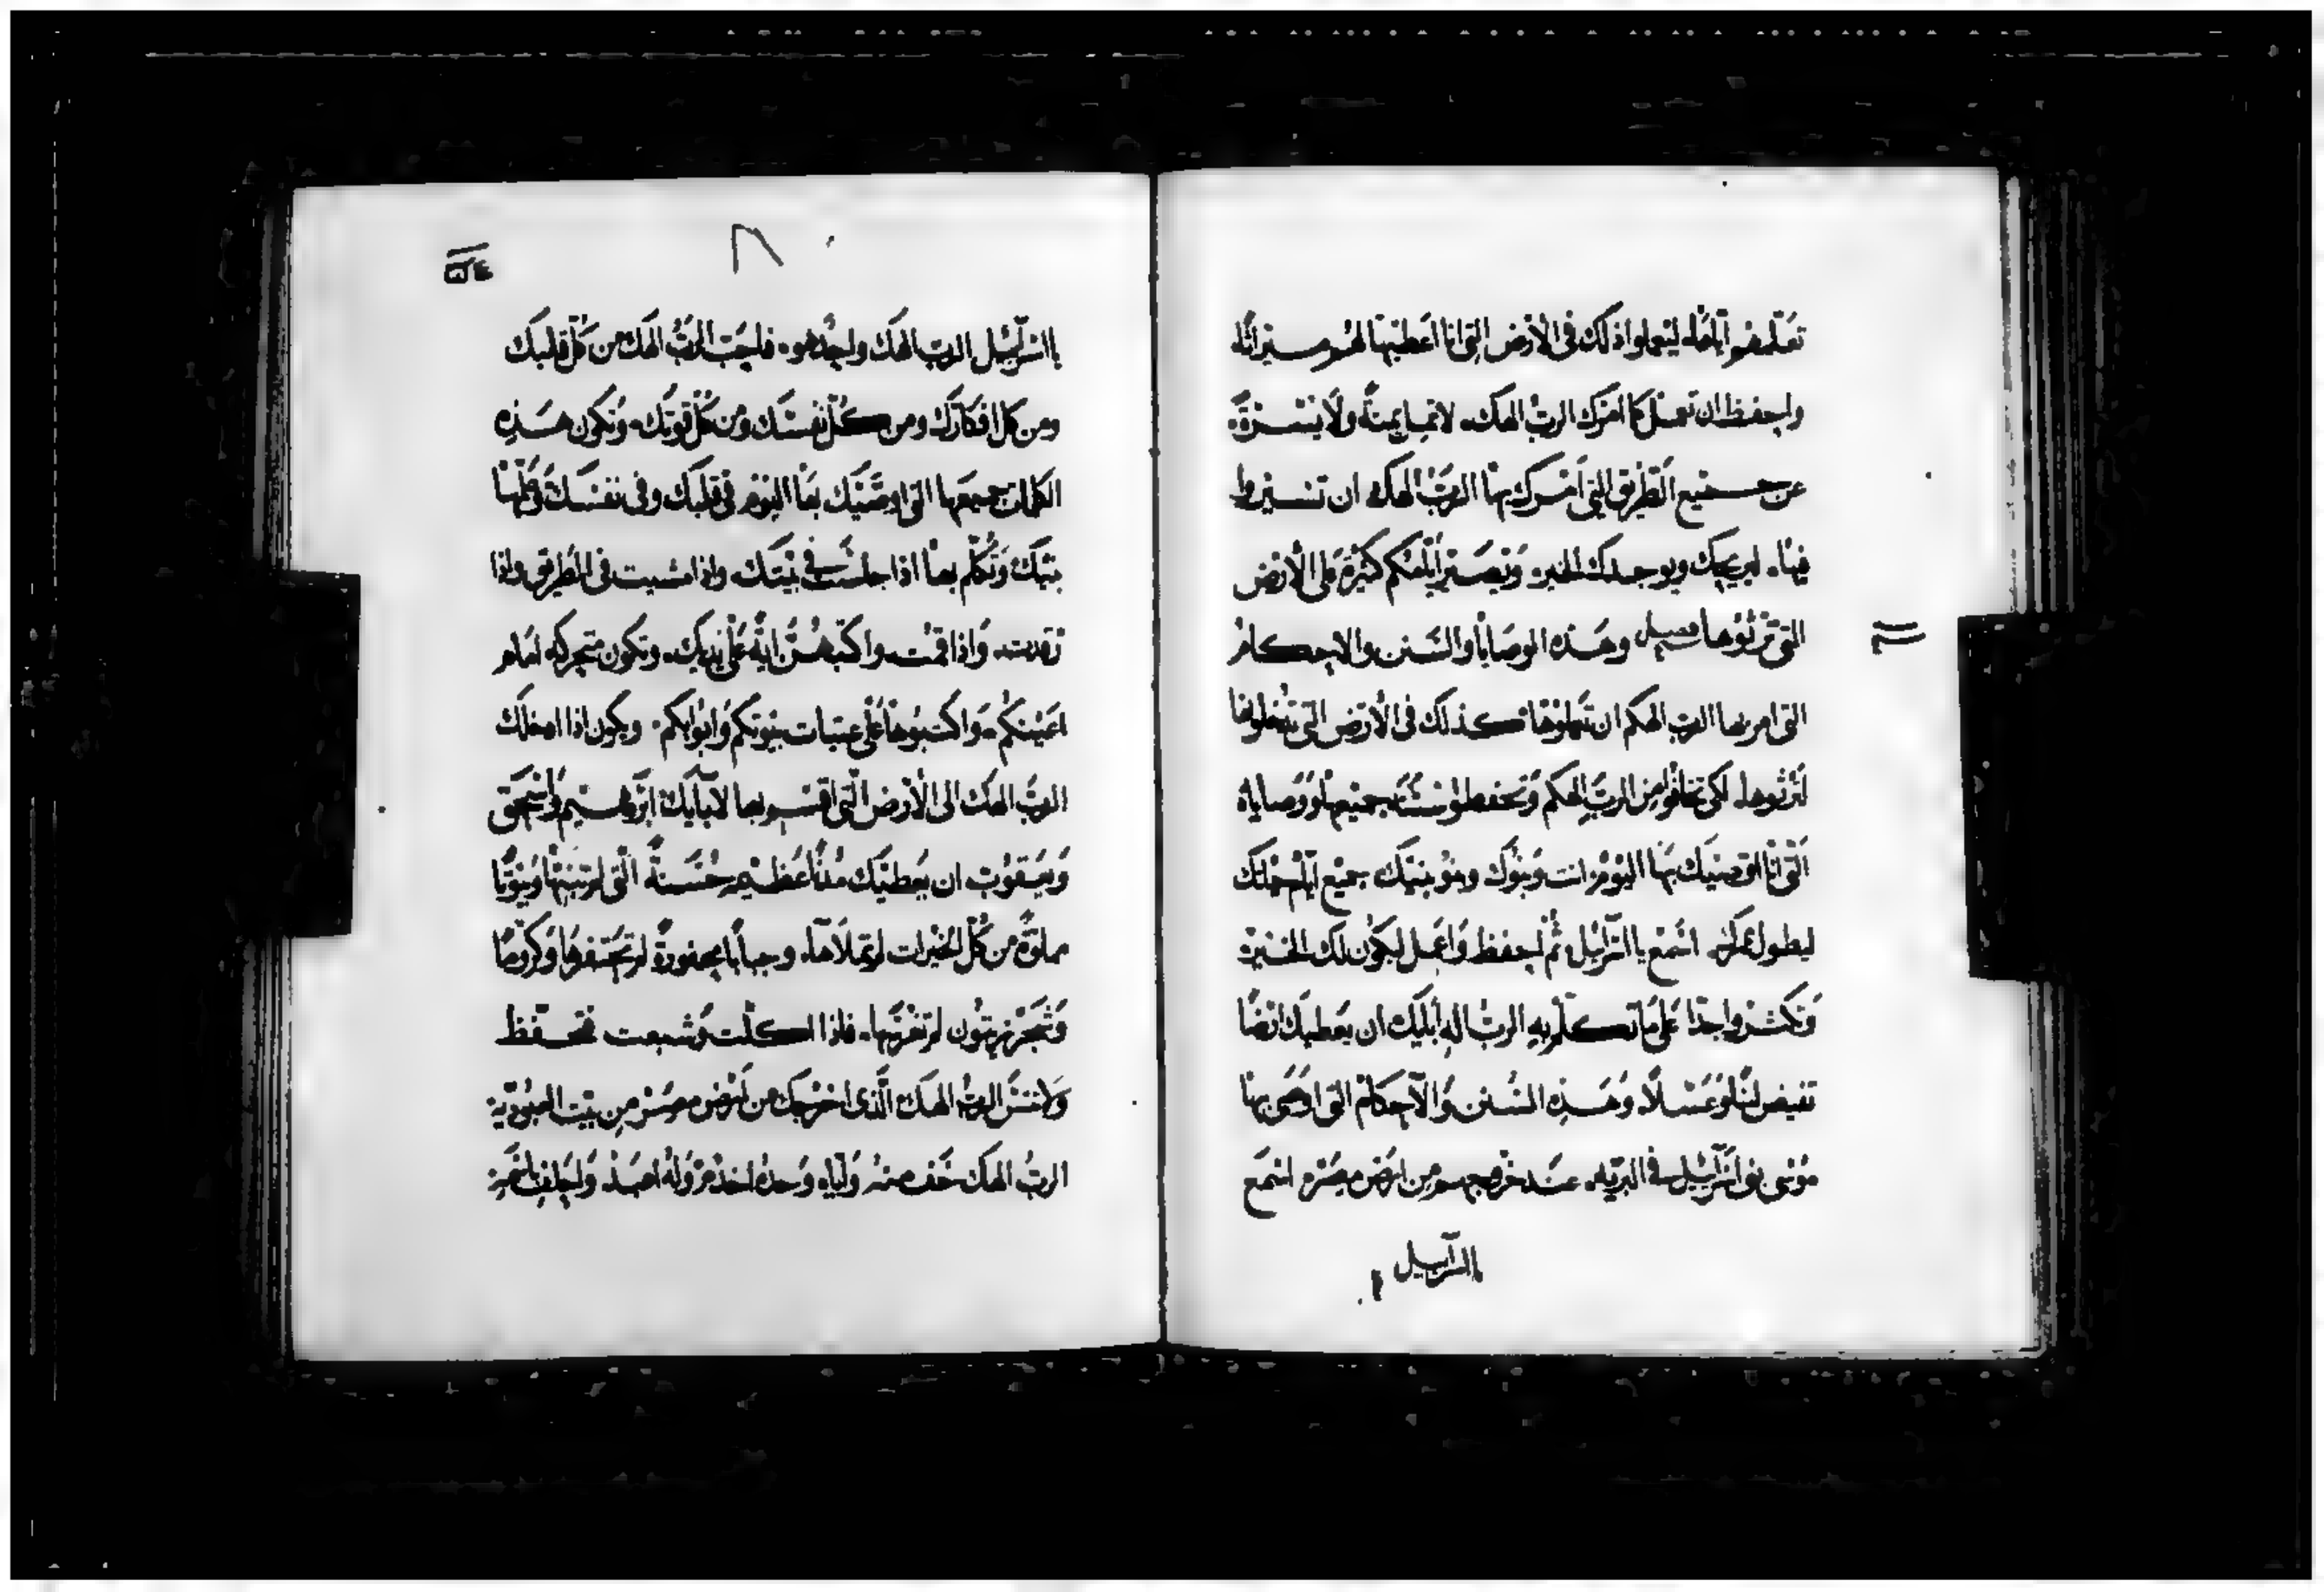 تعلمهم اياها ليعملوا ذلك في الأرض التي انا اعطيها لهم ميراثا
واحفظ ان تعمل كما امرك الرب الهك لا تميل يمنة ولا يسرة
عن جميع الطريق التي امرك بها الرب الهك ان تسيروا
فيها لكي يحيك ويوجد لك الخير وتصير ايامكم كثيرة على الأرض
التي ترثوها فصل وهذه الوصايا والسنن والاحكام
التي امر بها الرب الهكم ان تعملوها كذلك في الأرض التي تدخلونها
لترثوها لكي تخافوا من الرب الهكم وتحفظوا سننه جميعها ووصاياه
التي انا اوصيك بها اليوم انت وبنوك وبنو بنيك جميع ايام حياتك
ليطول عمرك اسمع يا اسرائيل ثم احفظ واعمل ليكون لك الخير
وتكثروا جدا على ما تكلم به الرب اله ابايك ان يعطيك ارضا
تفيض لبنا وعسلا وهذه السنن والاحكام التي اوصى بها
موسى بنى اسرائيل في البرية عند خروجهم من ارض مصر اسمع
يا اسرائيل
يا اسرائيل الرب الهك واحد هو فلتحب الرب الهك من كل قلبك
ومن كل افكارك ومن كل نفسك ومن كل قوتك وتكون هذه
الكلمات جميعها التي اوصيك بها اليوم في قلبك وفي نفسك وعلمها
بنيك وتكلم بها اذا جلست في بيتك واذا مشيت في الطريق واذا
رقدت واذا قمت واكتبهن اية على يديك وتكون متحركة امام
اعينكم واكتبوها على عتبات بيوتكم وابوابكم ويكون اذا ادخلك
الرب الهك الى الأرض التي اقسم بها لابايك ابرهيم واسحق
ويعقوب ان يعطيك مدنا عظيمة حسنة التي لم تبنها وبيوتا
مملوة من كل الخيرات لم تملاها وجبابا محفورة لم تحتفرها وكروما
وشجر زيتون لم تغرسها فاذا اكلت وشبعت تحفظ
ولا تنسى الرب الهك الذي اخرجك من ارض مصر من بيت العبودية
الرب الهك خف منه واياه وحده اخدم وله اعبد وليحلف باسمه